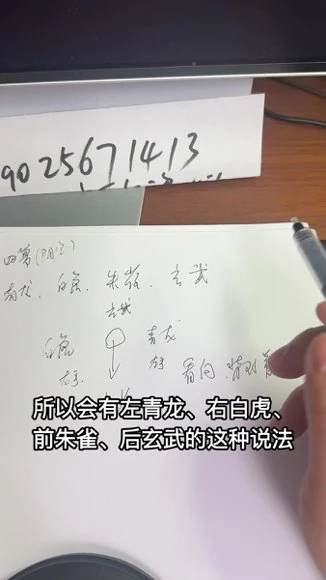 9025671413
四象
青龙、白虎、朱雀、玄武
玄武
白虎
青龙
右手
所以会有左青龙、右白虎、
前朱雀、后玄武的这种说法